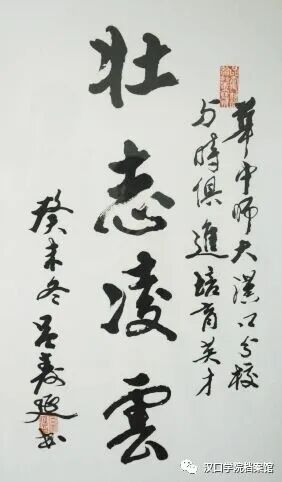 華中師大漢口分校
与時俱進培育英才
壮志凌雲
癸未冬 壽延书
汉口学院档案馆